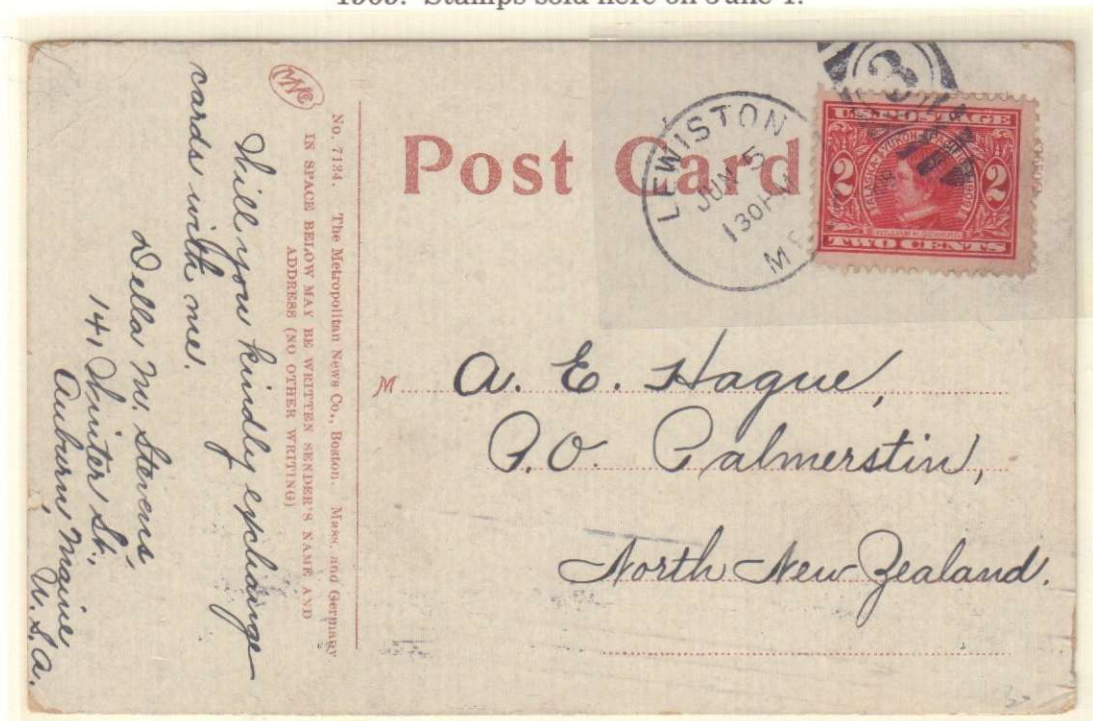 1909. Stamps sold here on June 1.
Post Card
LEWISTON
JUN 5
130PM
ME
3
U.S. POSTAGE
ALASKA-YUKON-PACIFIC
1909
2 2
WILLIAM H. SEWARD
TWO CENTS
MNC
No. 7134. The Metropolitan News Co., Boston. Mass. and Germany
IN SPACE BELOW MAY BE WRITTEN SENDER'S NAME AND
ADDRESS (NO OTHER WRITING)
Will you kindly exchange
cards with me.
Della M. Stevens,
141 Winter St.,
Auburn, Maine
U.S.A.
M A. E. Hague,
P.O. Palmerstin,
North New Zealand.
3-